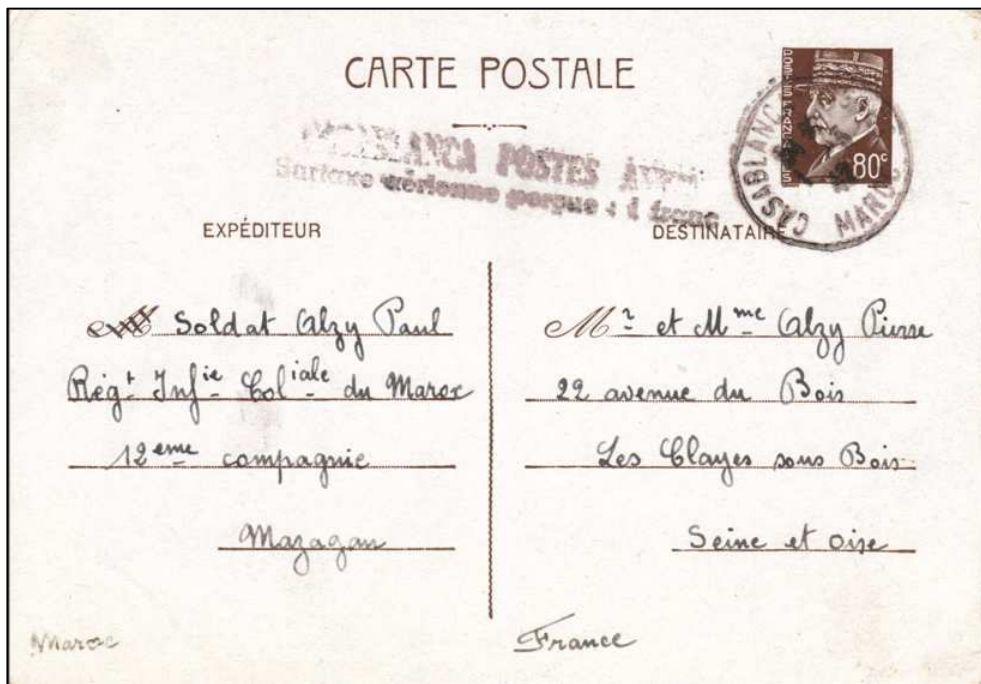 CARTE POSTALE
POSTES FRANÇAISES
80c
CASABLANCA POSTES AVION
Surtaxe aérienne perçue : 1 franc
CASABLANCA
MAROC
EXPÉDITEUR
Soldat Alzy Paul
Régt Infie Coliale du Maroc
12eme compagnie
Mazagan
Maroc
DESTINATAIRE
Mr et Mme Alzy Pierre
22 avenue du Bois
Les Clayes sous Bois
Seine et Oise
France